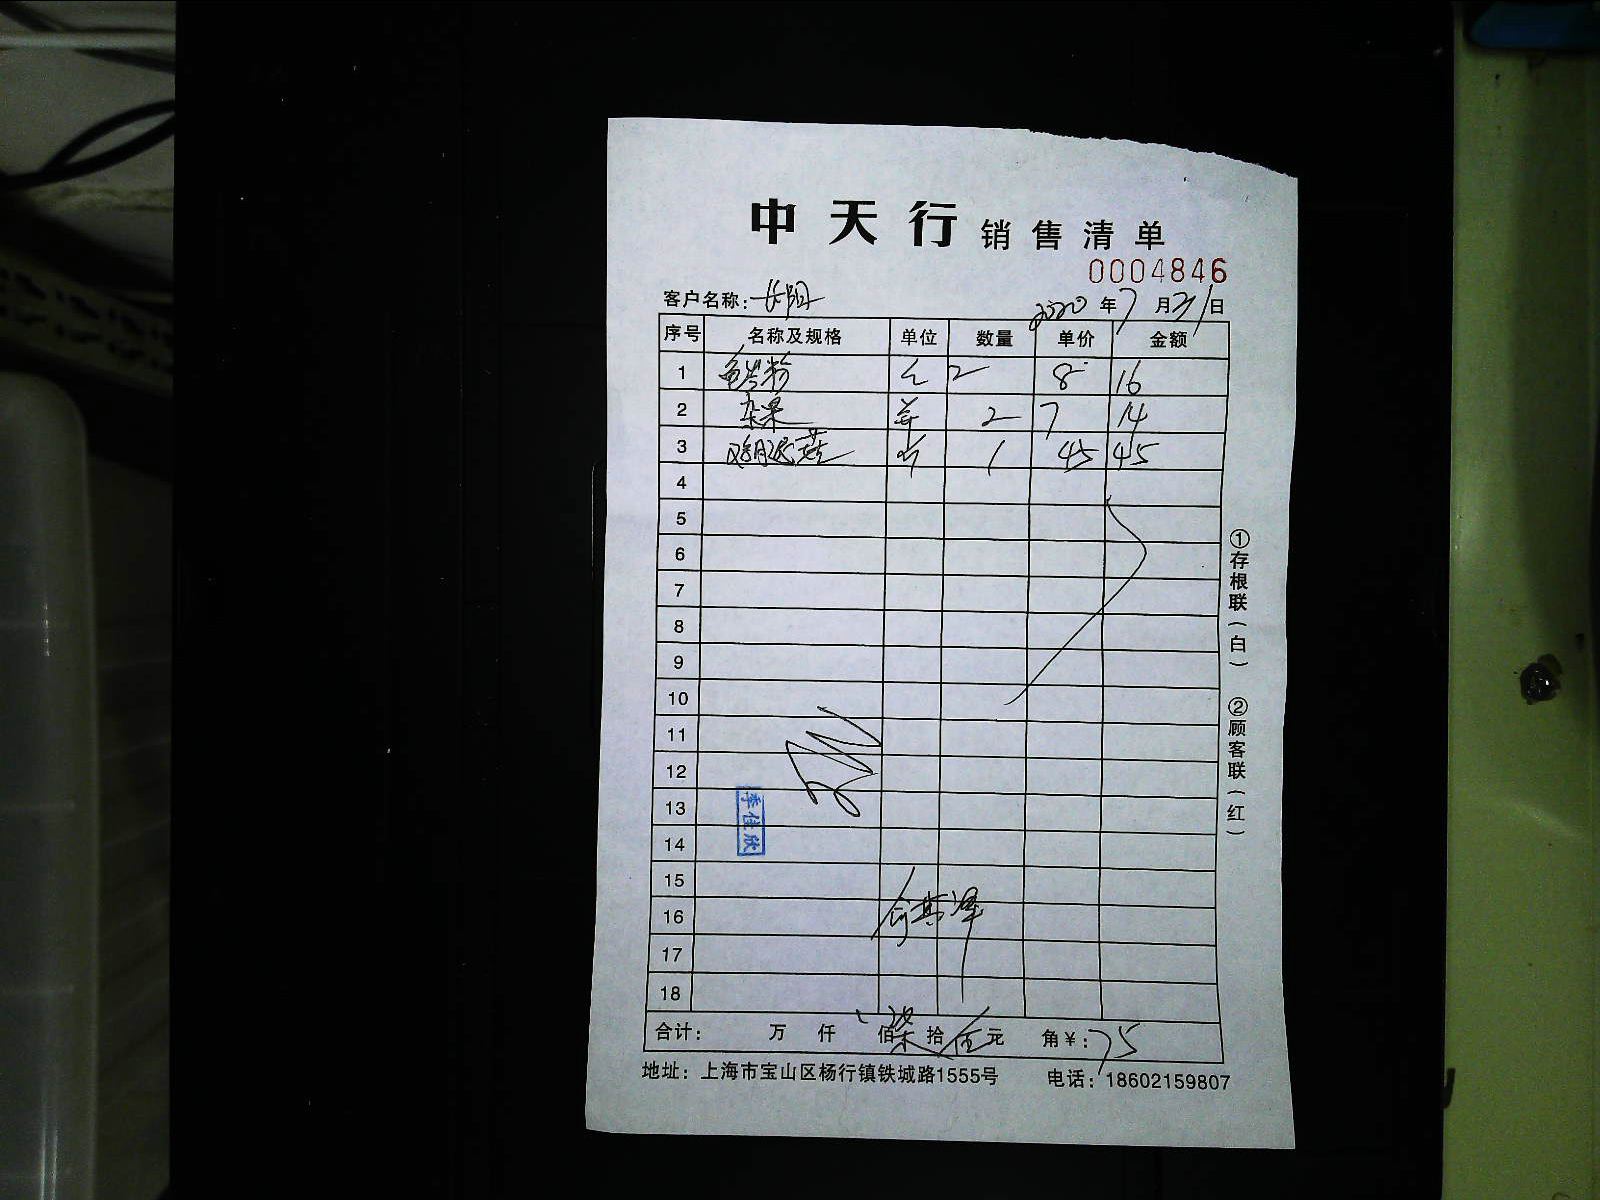 中天行 销售清单
0004846
客户名称: 长阳 2020 年 7 月 21 日
序号 名称及规格 单位 数量 单价 金额
1 粉 2 8 16
2 杂果 2 7 14
3 1 45 45
4
5
6
7
8
9
10
11
12
13
14
15
16
17
18
李佳欣
合计: 万 仟 佰 柒 拾 伍 元 角 ¥: 75
地址: 上海市宝山区杨行镇铁城路1555号 电话: 18602159807
①存根联(白)
②顾客联(红)